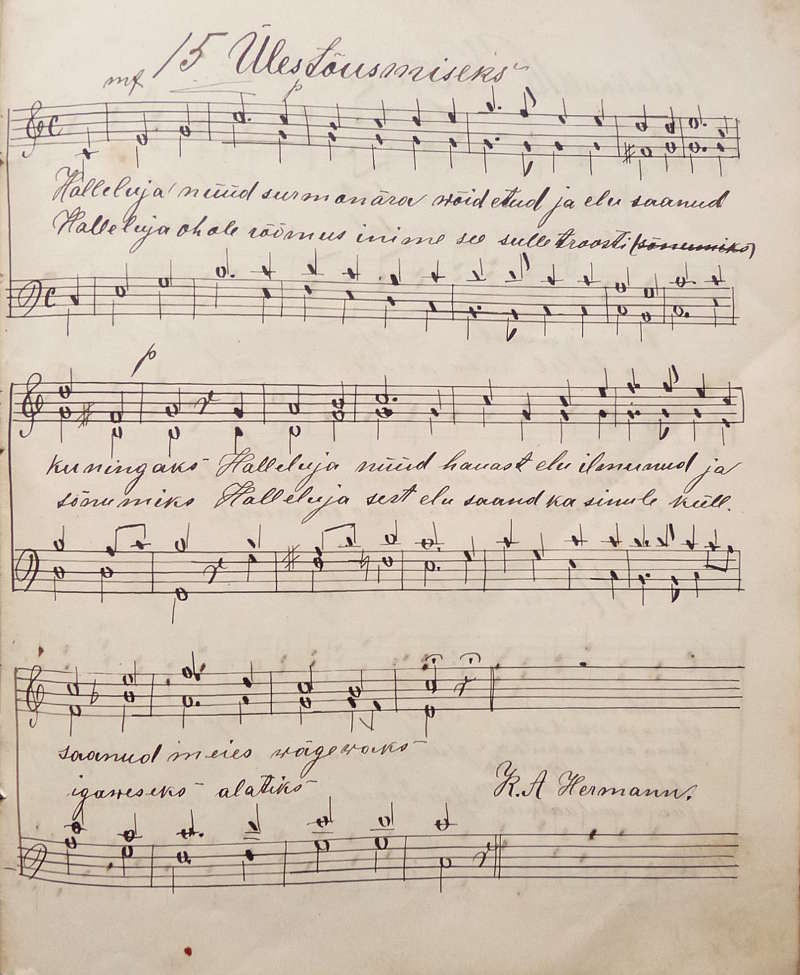 15 Ülestõusmiseks
mf
p
Halleluja nüüd surmon ära wõidetud ja elu saanud
Halleluja ohole rõõmus inime see sulle troosti (sõnumiks)
p
kuningaks Halleluja nüüd hauast elu ilmunud ja
sõnumiks Halleluja sest elu saand ka sinule küll.
saanud meies wägewaks
igaweseks alatiks
K. A Hermann.